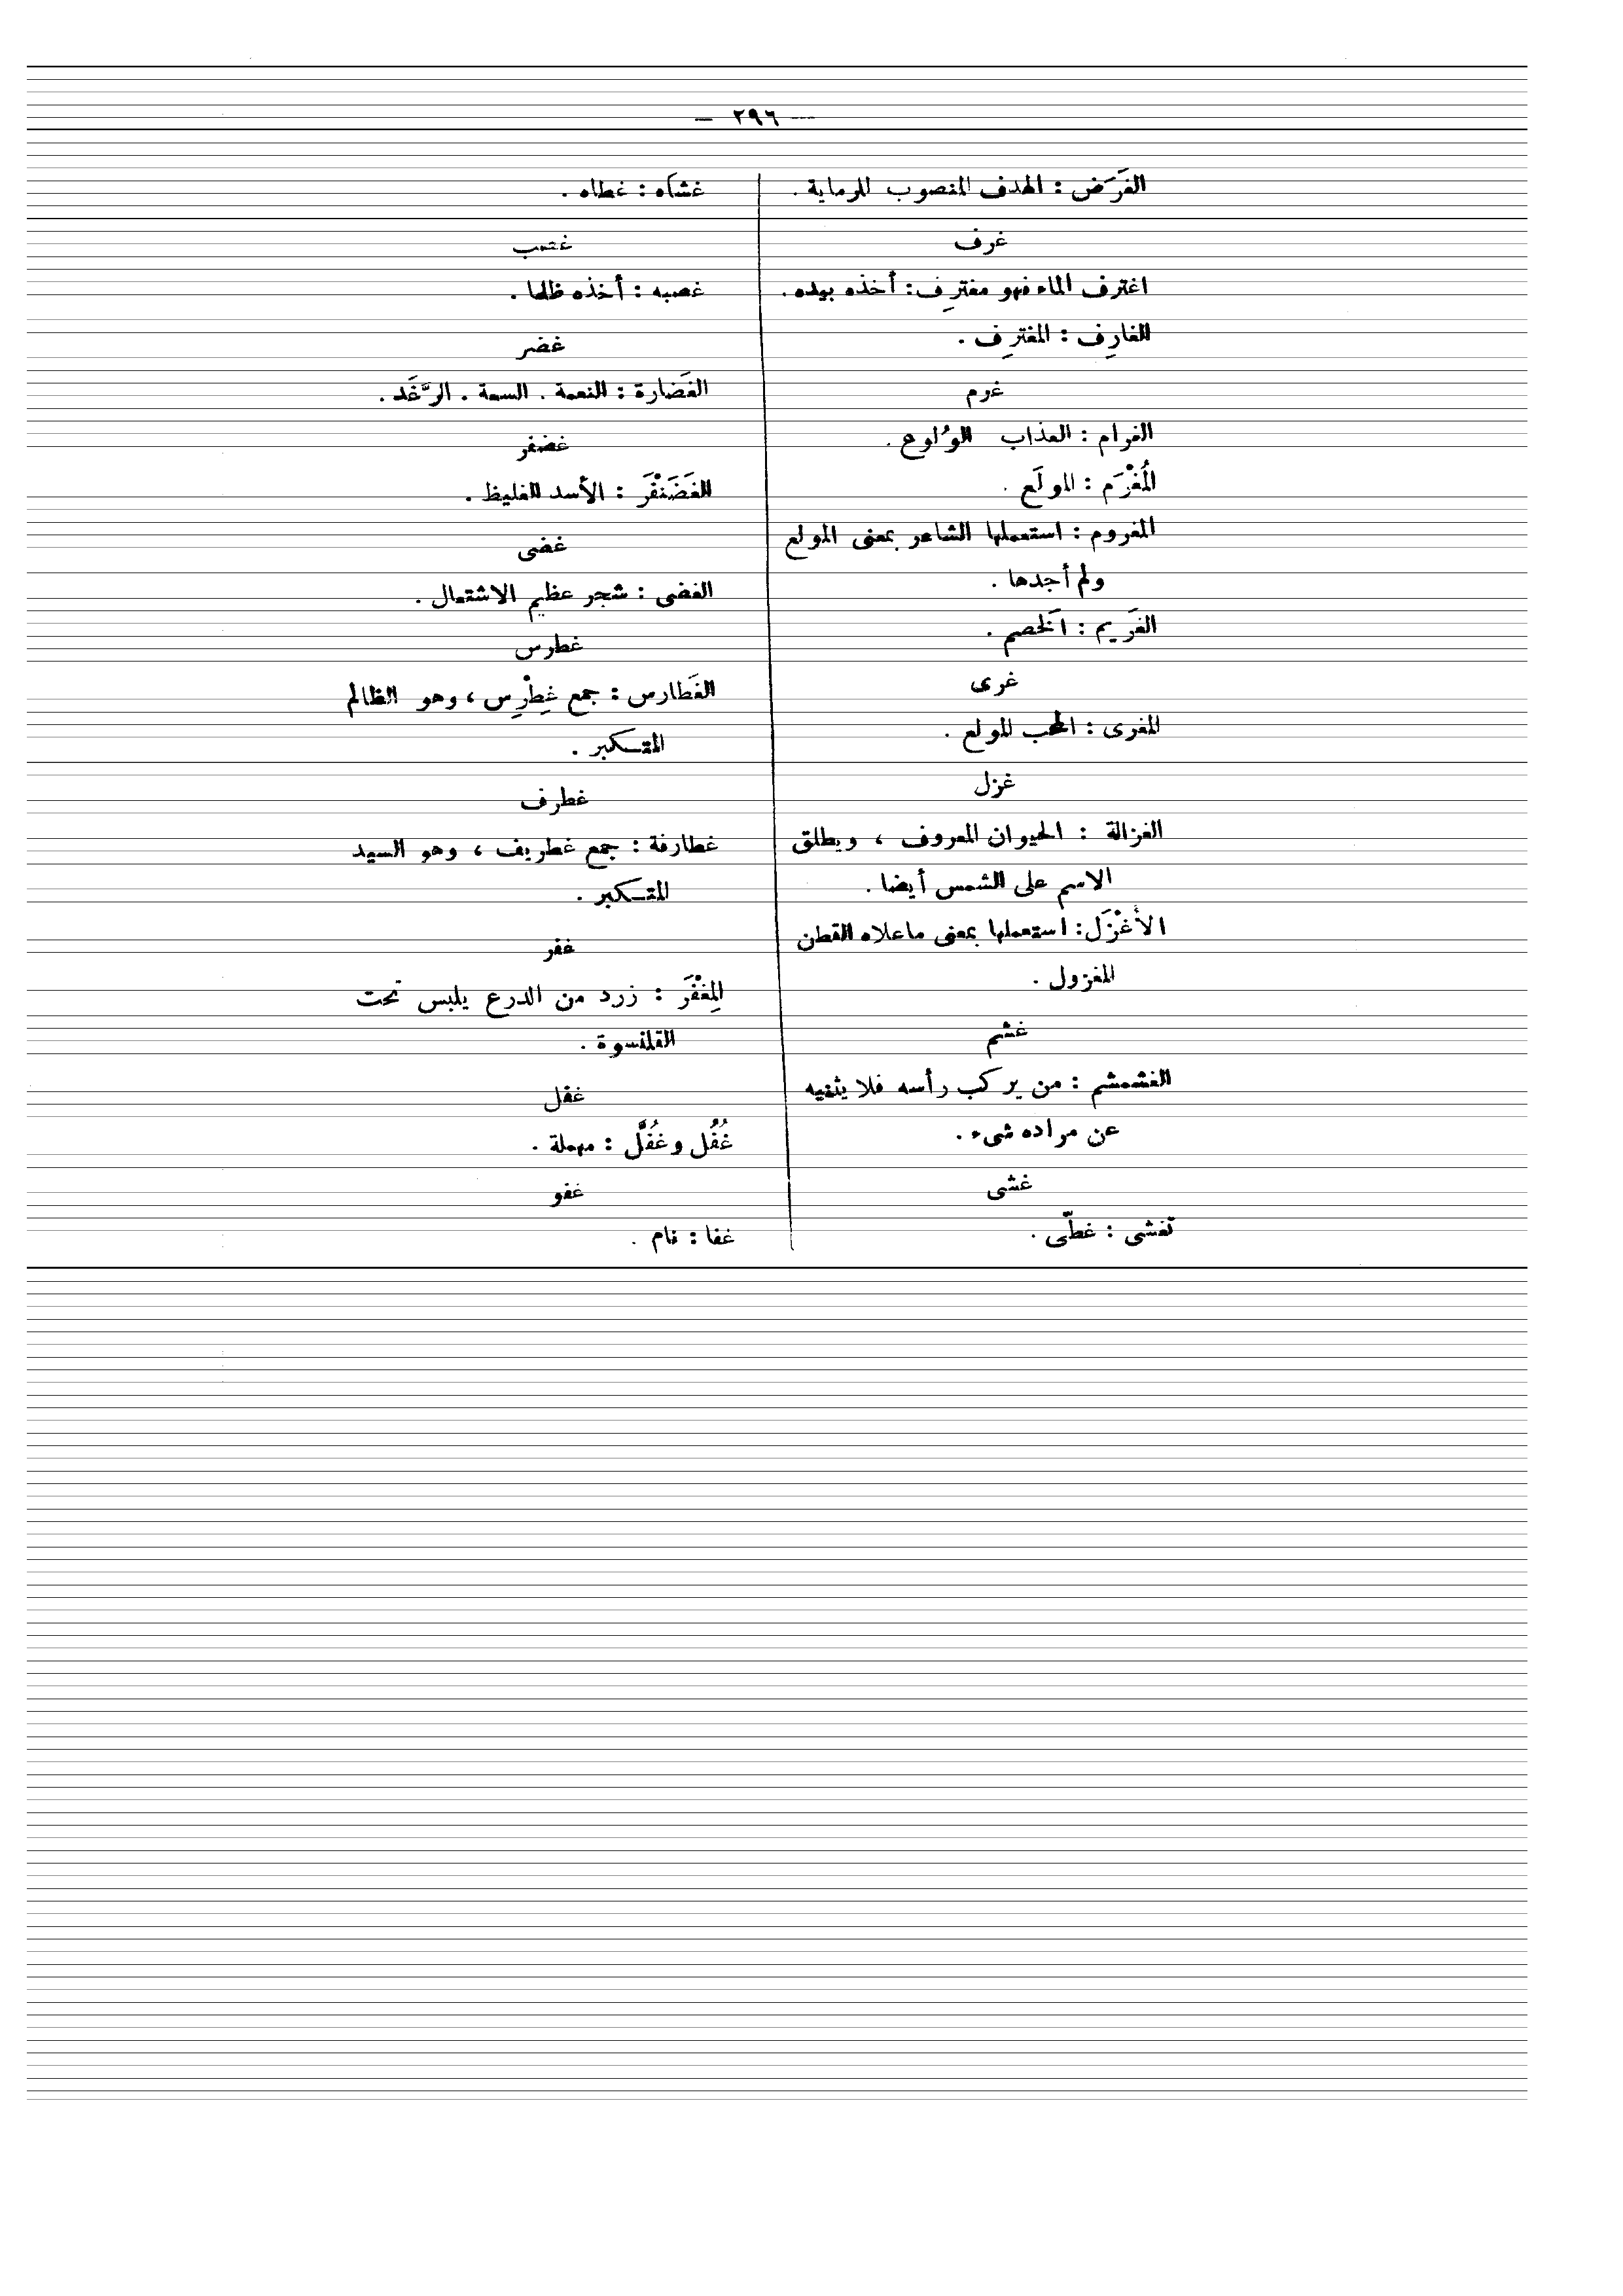 — ٢٩٦ —
الغَرَض : الهدف المنصوب للرماية .
غرف
اغترف الماء فهو مغترِف : أخذه بيده .
الغارِف : المغترِف .
غرم
الغرام : العذاب الوُلوع .
المُغْرَم : المولَع .
المغروم : استعملها الشاعر بمعنى المولع
ولم أجدها .
الغَريم : الخَصم .
غرى
المغرى : المحب المولع .
غزل
الغزالة : الحيوان المعروف ، ويطلق
الاسم على الشمس أيضا .
الأغْزَل : استعملها بمعنى ماعلاه القطن
المغزول .
غشم
الغشمشم : من يركب رأسه فلا يثنيه
عن مراده شىء .
غشى
تغشى : غطّى .
غشاه : غطاه .
غصب
غصبه : أخذه ظلما .
غضر
الغَضارة : النعمة . السعة . الرَّغَد .
غضنفر
الغَضَنْفَر : الأسد الغليظ .
غضى
الغضى : شجر عظيم الاشتعال .
غطرس
الغَطارس : جمع غِطْرِس ، وهو الظالم
المتكبر .
غطرف
غطارفة : جمع غطريف ، وهو السيد
المتكبر .
غفر
المِغْفَر : زرد من الدرع يلبس تحت
القلنسوة .
غفل
غُفُل وغُفَّل : مهملة .
غفو
غفا : نام .